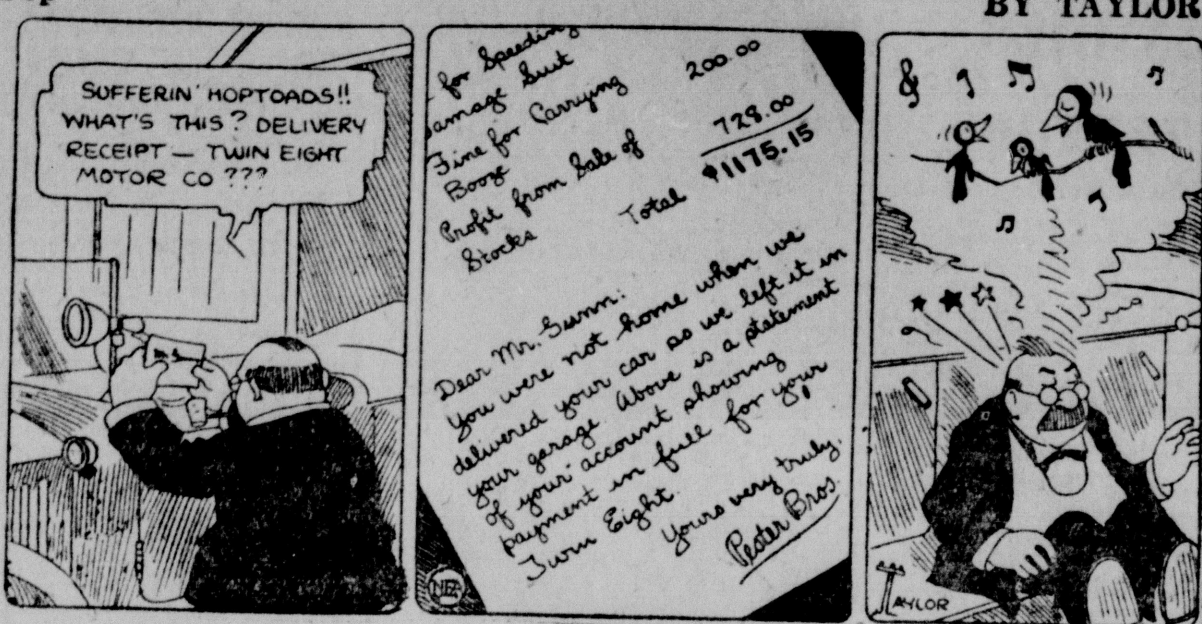 BY TAYLOR
SUFFERIN' HOPTOADS!!
WHAT'S THIS? DELIVERY
RECEIPT — TWIN EIGHT
MOTOR CO ???
for Speeding
Damage Suit 200.00
Fine for Carrying
Booze 728.00
Profit from Sale of
Stocks Total $1175.15
Dear Mr. Gunn:
You were not home when we
delivered your car so we left it in
your garage. Above is a statement
of your account showing
payment in full for your
Twin Eight.
Yours very truly,
Pester Bros.
NEA
TAYLOR